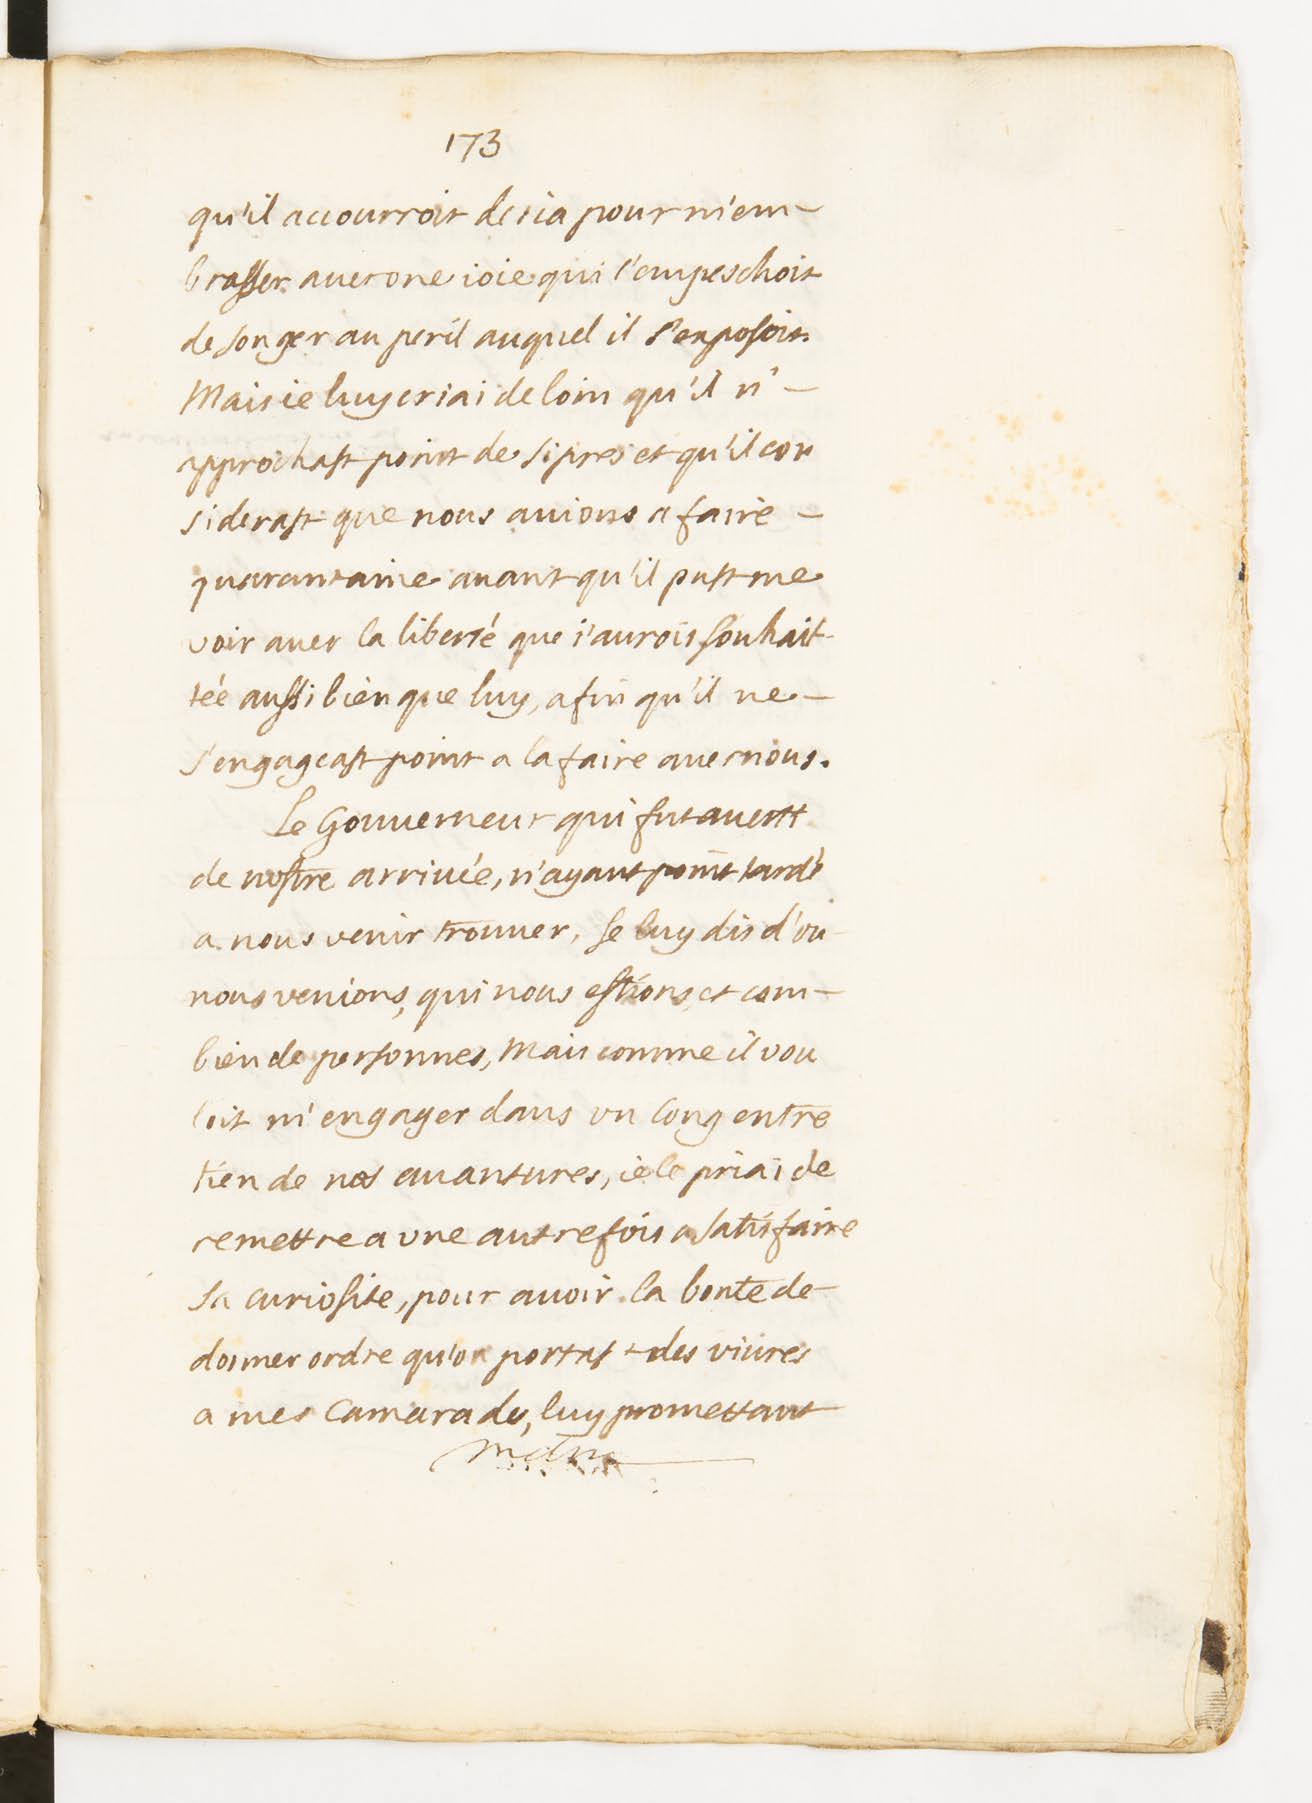 173
qu'il accourroit desia pour m'em-
brasser avec one ioie qui l'empeschoit
de songer au peril auquel il s'exposoit.
Mais ie luy criai de loin qu'il n'-
approchast point de si pres et qu'il con
siderast que nous auions a faire -
quarantaine auant qu'il pust me
voir auec la liberté que i'aurois souhait-
tée aussi bien que luy, afin qu'il ne -
s'engageast point a la faire auec nous.
Le Gouuerneur qui fut auerti
de nostre arriuée, n'ayant point tardé
a nous venir trouuer, Je luy dis d'ou
nous venions, qui nous estions, et com-
bien de personnes, Mais comme il vou
loit m'engager dans vn long entre
tien de nos auantures, ie le priai de
remettre a vne autre fois a satisfaire
sa curiosite, pour auoir la bonte de-
donner ordre qu'on portast des viures
a mes Camarades, luy promettant